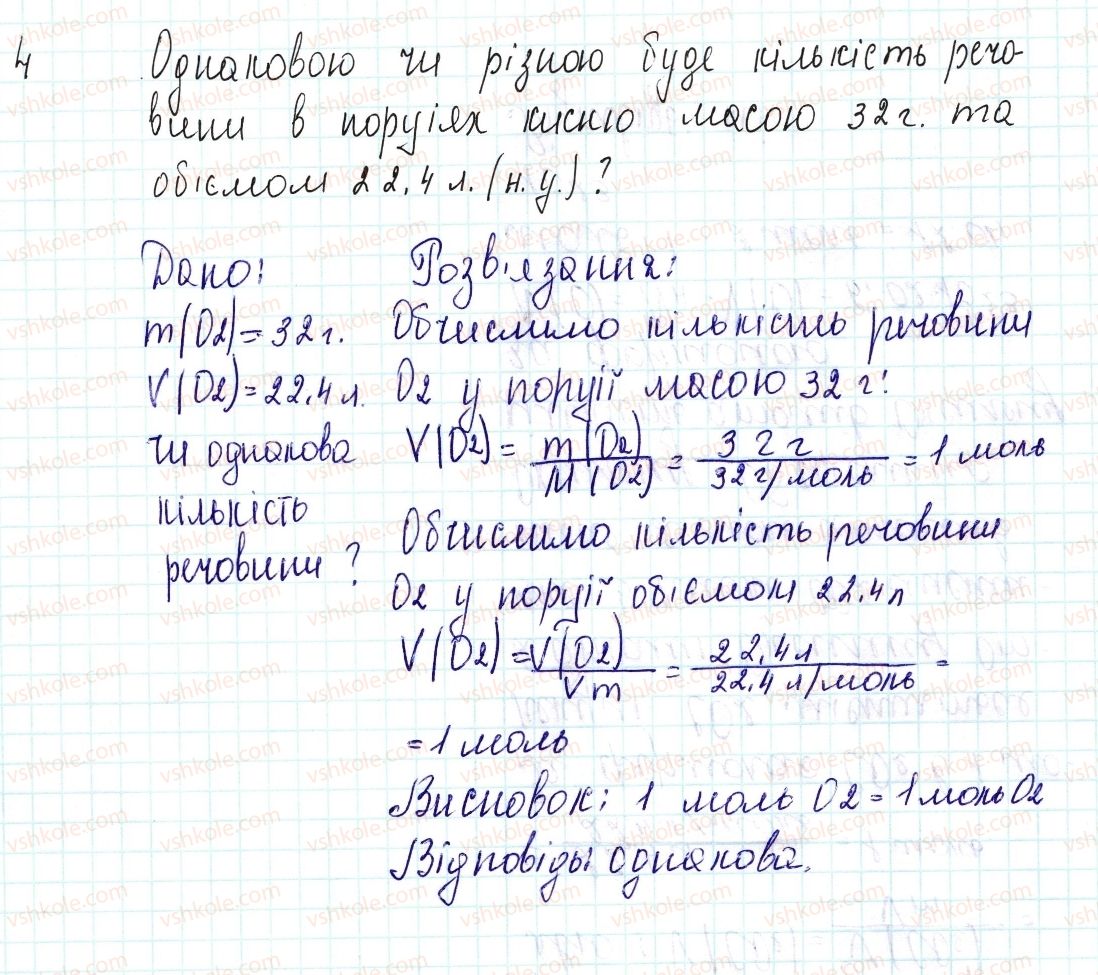 4 Однаковою чи різною буде кількість речо-
вини в порціях кисню масою 32 г. та
обіємом 22,4 л. (н.у.)?
Дано:
m(O2)=32г.
V(O2)=22,4 л.
чи однакова
кількість
речовини?
Розв'язання:
Обчислимо кількість речовини
O2 у порції масою 32 г:
V(O2)= m(O2) / M(O2) = 32 г / 32 г/моль = 1 моль
Обчислимо кількість речовини
O2 у порції обіємом 22,4л
V(O2)= V(O2) / Vm = 22,4л / 22,4 л/моль =
=1 моль
Висновок: 1 моль O2 = 1 моль O2
Відповідь: однакова.